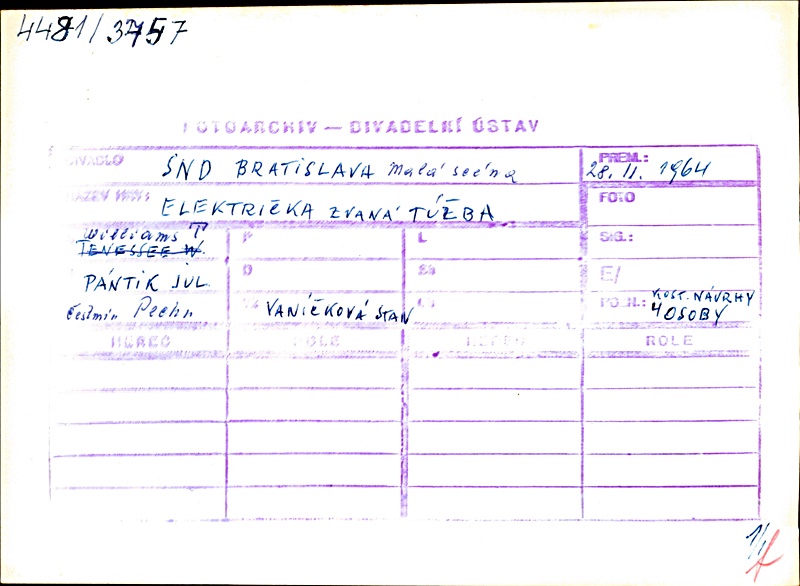 4481/3757
FOTOARCHIV — DIVADELNÍ ÚSTAV
DIVADLO SND BRATISLAVA Malá scéna PREM.: 28. 11. 1964
NÁZEV HRY: ELEKTRIČKA ZVANÁ TÚŽBA FOTO
Williams T P L SIG.:
TENESSEE W.
PÁNTIK JUL. O E/
Čestmír Pechr VANÍČKOVÁ STAN POZN.: KOST. NÁVRHY
4 OSOBY
HEREC ROLE HEREC ROLE
1/1